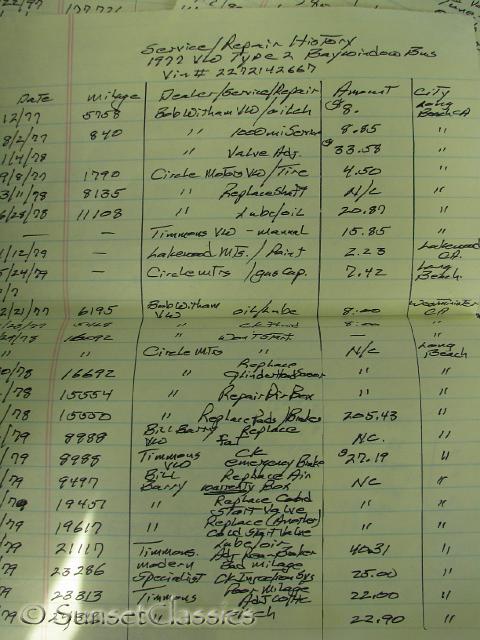 Service/Repair History
1977 VW Type 2 Baywindow Bus
Vin# 2272142667
Date Milage Dealer/Service/Repair Amount City
12/77 5758 Bob Witham VW/oilch $8. Long Beach CA
8/2/77 840 " 1000 mi Service 8.85 "
1/4/78 " Valve Adj. $33.58 "
9/8/77 1790 Circle Motors VW/Tire 4.50 "
3/11/78 8135 " Replace Shaft N/C "
6/28/78 11108 " Lube/oil 20.87 "
— — Timmons VW - manual 15.85 "
1/12/79 — Lakewood Mts./Paint 2.23 Lakewood CA.
5/24/79 — Circle Mtrs/gas Cap. 7.42 Long Beach.
2/21/77 6195 Bob Witham VW oil/Lube 8.00 Westminister CA
" 8.00 "
16692 " Won't Start "
" " Circle Mts N/C Long Beach
/78 16692 " Replace " "
/78 15554 " Repair Air Box " "
/78 15550 " Replace Pads/Brakes 205.43 "
/79 8988 Bill Barry VW Replace NC. "
/79 8985 Timmons VW CK emergency Brake $27.19 "
/79 9497 Bill Barry Replace Air Box NC "
/79 19451 " Replace Cold Start Valve " "
/79 19617 " Replace (Another) Cold Start Valve " "
/79 21117 Timmons. Lube/oil 40.31 "
79 23286 modern Specialist Bad Milage CK Injection Sys 25.00 "
/79 23313 Timmons Poor Milage 22.00 "
/79 " 22.90 "
© SunsetClassics